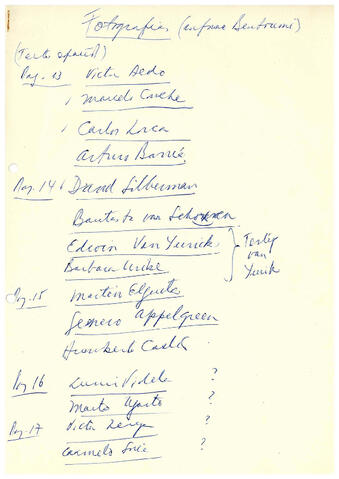 Fotografías (
(Texto español)
Pag. 13 Victor
Marcelo Concha
Carlos Lorca
Arturo Barría
Pag. 14 David Silberman
Bautista van Schouwen
Edwin Van Yurick
Barbara Uribe
van
Yurick
Pag. 15 Martin Elgueta
Appelgreen
Humberto
Pag 16 Lumi Videla ?
Marta Ugarte ?
Pag. 17 Victor Zerega ?
Carmelo Soria ?